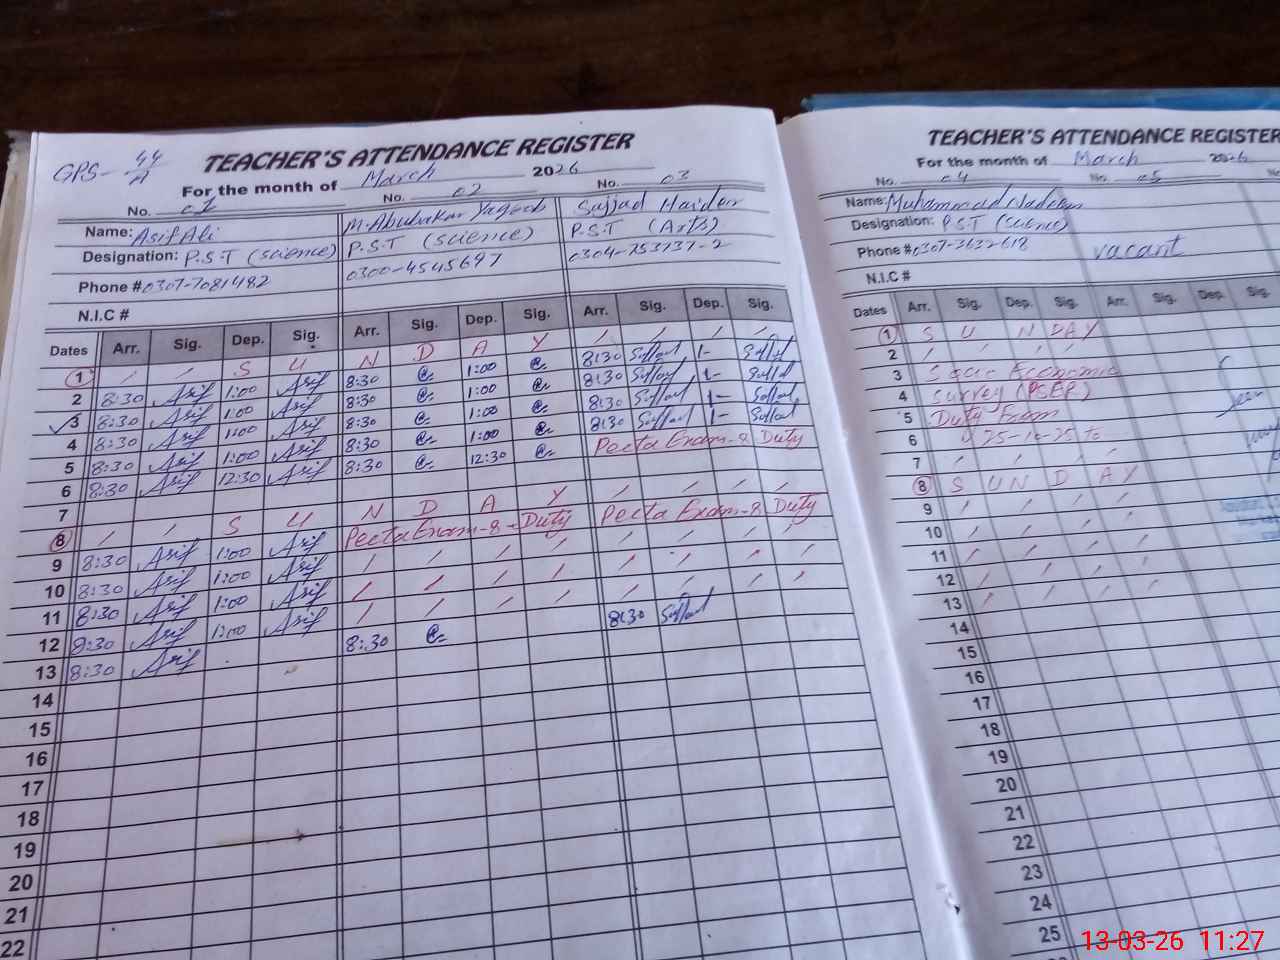 GPS- 44/A
TEACHER'S ATTENDANCE REGISTER
For the month of March 2026
No. 01 No. 02 No. 03
Name: Asif Ali M. Abubakar Yaqoob Sajjad Haider
Designation: P.S.T (science) P.S.T (science) P.S.T (Arts)
Phone # 0307-7081482 0300-4545697 0304-753737-2
N.I.C #
Dates Arr. Sig. Dep. Sig. Arr. Sig. Dep. Sig. Arr. Sig. Dep. Sig.
1 S U N D A Y
2 8:30 Asif 1:00 Asif 8:30 1:00 8:30 1-
3 8:30 Asif 1:00 Asif 8:30 1:00 8:30 1-
4 8:30 Asif 1:00 Asif 8:30 1:00 8:30 1-
5 8:30 Asif 1:00 Asif 8:30 1:00 8:30 1-
6 8:30 Asif 12:30 Asif 8:30 12:30 Peeta Exam-8 Duty
7
8 S U N D A Y
9 8:30 Asif 1:00 Asif Peeta Exam-8-Duty Peeta Exam-8 Duty
10 8:30 Asif 1:00 Asif
11 8:30 Asif 1:00 Asif
12 8:30 Asif 1:00 Asif
13 8:30 Asif 8:30 8:30
14
15
16
17
18
19
20
21
22
TEACHER'S ATTENDANCE REGISTER
For the month of March 2026
No. 04 No. 05
Name: Muhammad Nadeem
Designation: P.S.T (science) vacant
Phone # 0307-3632618
N.I.C #
Dates Arr. Sig. Dep. Sig. Arr. Sig. Dep. Sig.
1 S U N DAY
2
3 Socio Economic
4 Survey (PSER)
5 Duty From
6 25-10-25 to
7
8 S U N D A Y
9
10
11
12
13
14
15
16
17
18
19
20
21
22
23
24
25
13-03-26 11:27